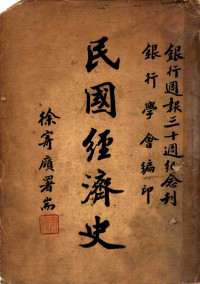 銀行週報三十週紀念刊
銀行學會編印
民國經濟史
徐寄廎署耑